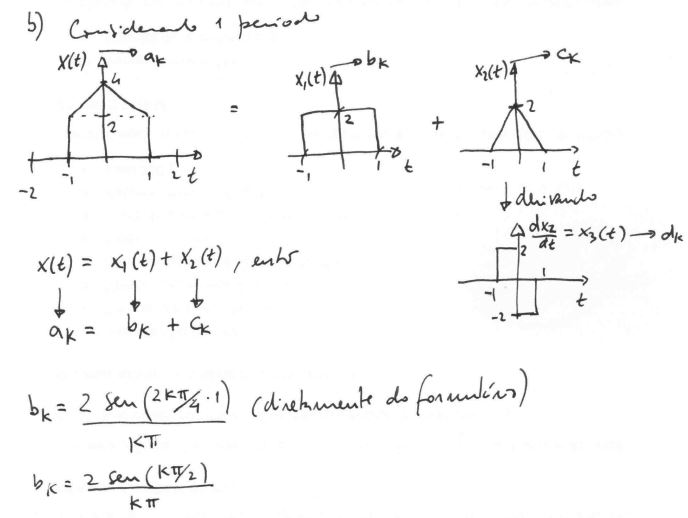 b) Considerando 1 período
x(t) → aₖ
4
2
-2 -1 1 2 t
=
x₁(t) → bₖ
2
-1 1 t
+
x₂(t) → cₖ
2
-1 1 t
↓ derivando
dx₂/dt = x₃(t) → dₖ
2
-1 1 t
-2
x(t) = x₁(t) + x₂(t), então
↓ ↓ ↓
aₖ = bₖ + cₖ
bₖ = 2 sen(2kπ/4 · 1) / kπ (diretamente do formulário)
bₖ = 2 sen(kπ/2) / kπ